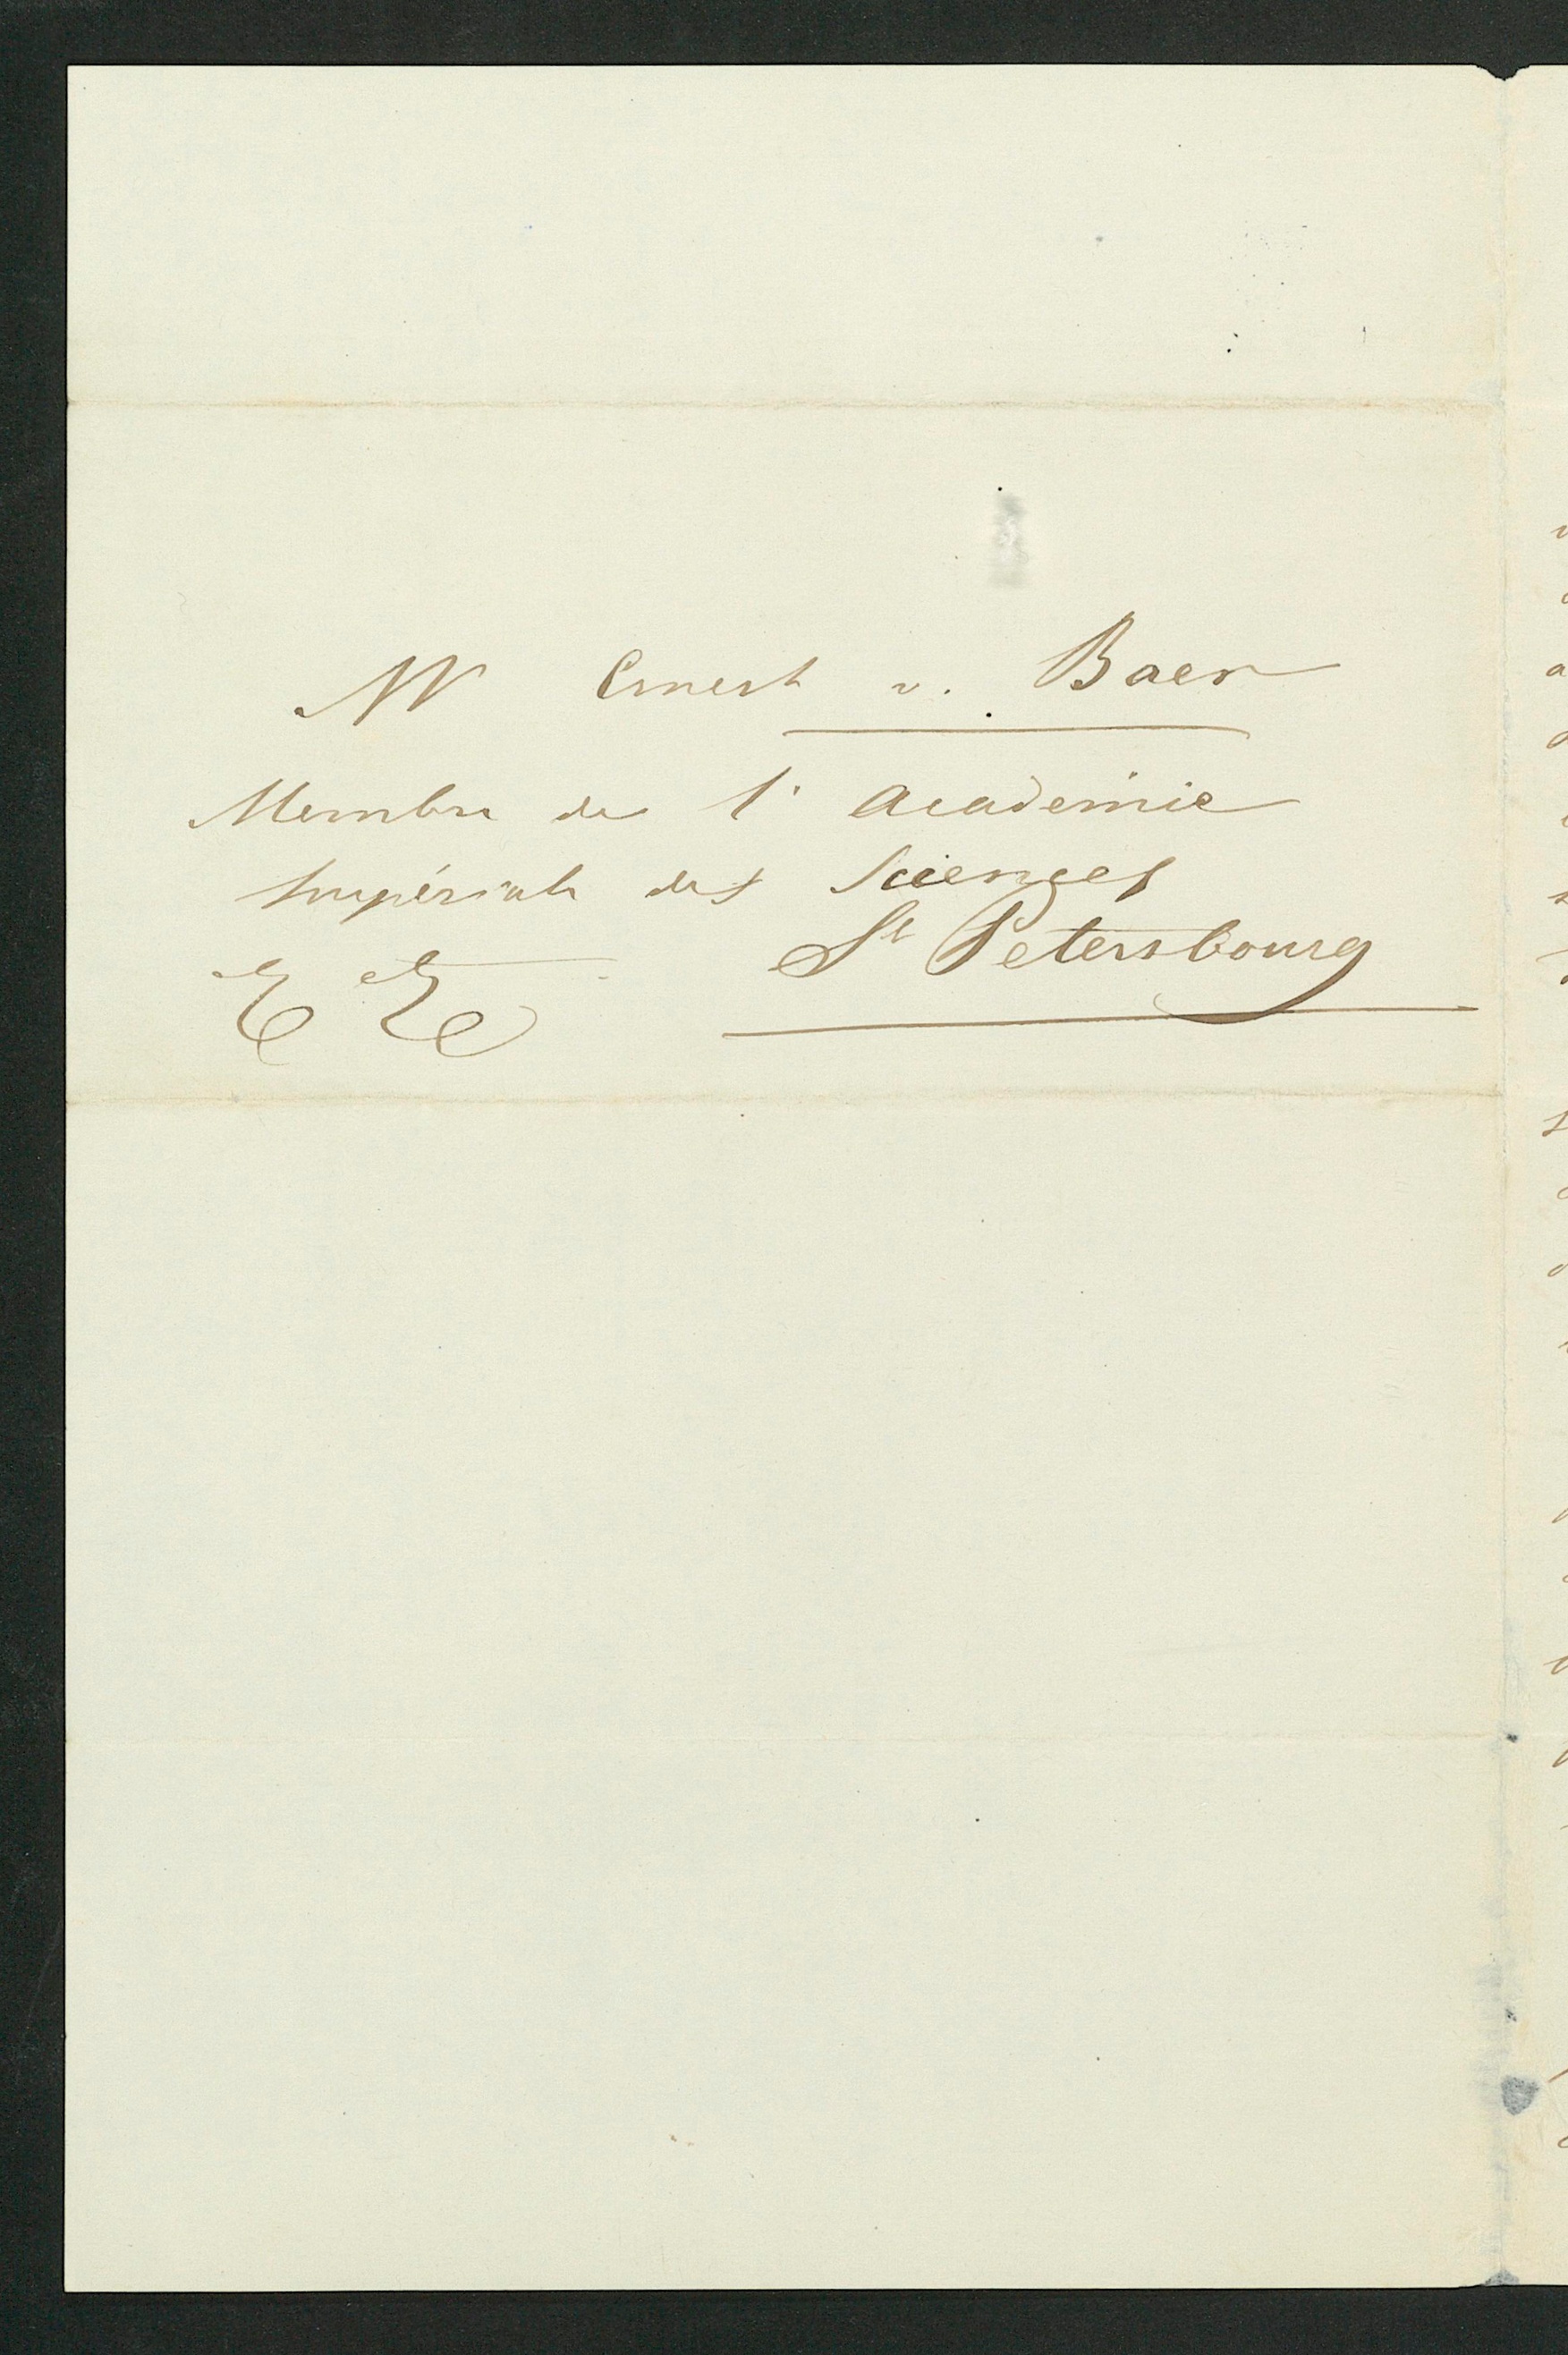 Mr Ernest v. Baer
Membre de l'Academie
Impériale des Sciences
St Petersbourg